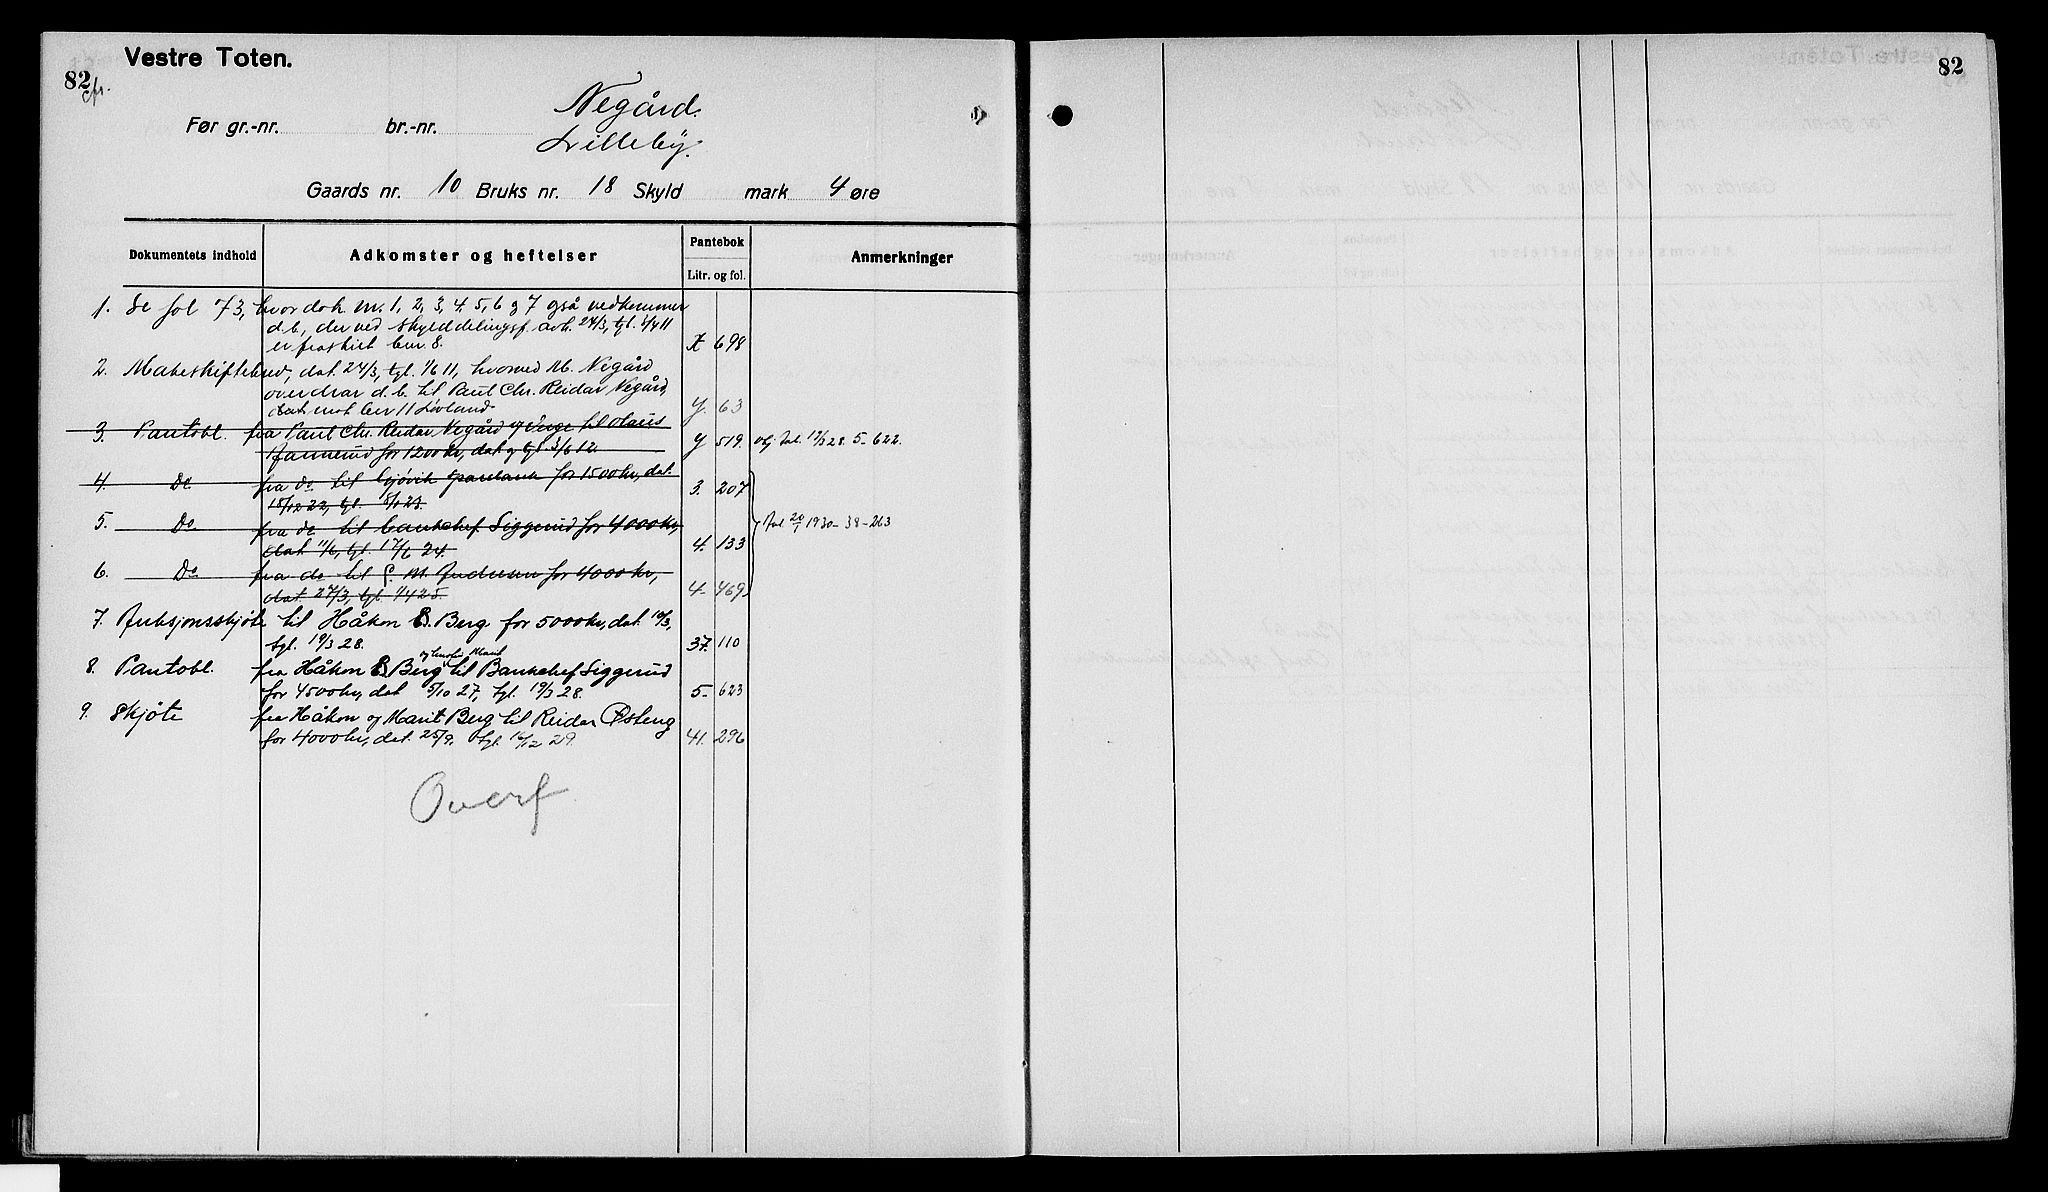 Vestre Toten.
82
cfr.
Negård.
Før gr.-nr. br.-nr.
Lilleby.
Gaards nr. 10 Bruks nr. 18 Skyld mark 4 øre
Dokumentets indhold Adkomster og heftelser Pantebok Anmerkninger
Litr. og fol.
1. Se fol 73, hvor dok. nr. 1, 2, 3, 4, 5, 6 og 7 også vedkommer
d.b., der ved skylddelingsf. avh. 24/3, tgl. 1/4 11
er fraskilt bnr 8. X 698
2. Makeskiftebrev, dat. 24/3, tgl. 1/6 11, hvorved M. Negård
overdrar d.b. til Paul Chr. Reidar Negård,
mot bnr 11 Løvland. Y. 63
3. Pantobl. fra Paul Chr. Reidar Negård og til Olaus
for 1200 kr, dat og tgl. 3/6 12. Y 519. avl. 19/3 28. 5-622.
4. Do fra do til Gjøvik Sparebank for 1500 kr, dat.
15/12 22, tgl. 5/1 23. 3. 207
5. Do fra do til banksjef Siggerud for 4000 kr,
dat 11/6, tgl. 17/6 24. 4. 133 20/1 1930 - 38-263
6. Do fra do til P. M. Andersen for 4000 kr,
dat 27/3, tgl 1/4 25. 4- 469
7. Auksjonsskjøte til Håkon B. Berg for 5000 kr, dat. 10/3,
tgl. 19/3 28. 37. 110
og hustru Marit
8. Pantobl. fra Håkon B. Berg til Banksjef Siggerud
for 4500 kr, dat 5/10 27, tgl. 19/3 28. 5- 623
9. Skjøte fra Håkon og Marit Berg til Reidar Østeng
for 4000 kr, dat. 25/9, tgl. 16/12 29. 41. 296
Overf
82